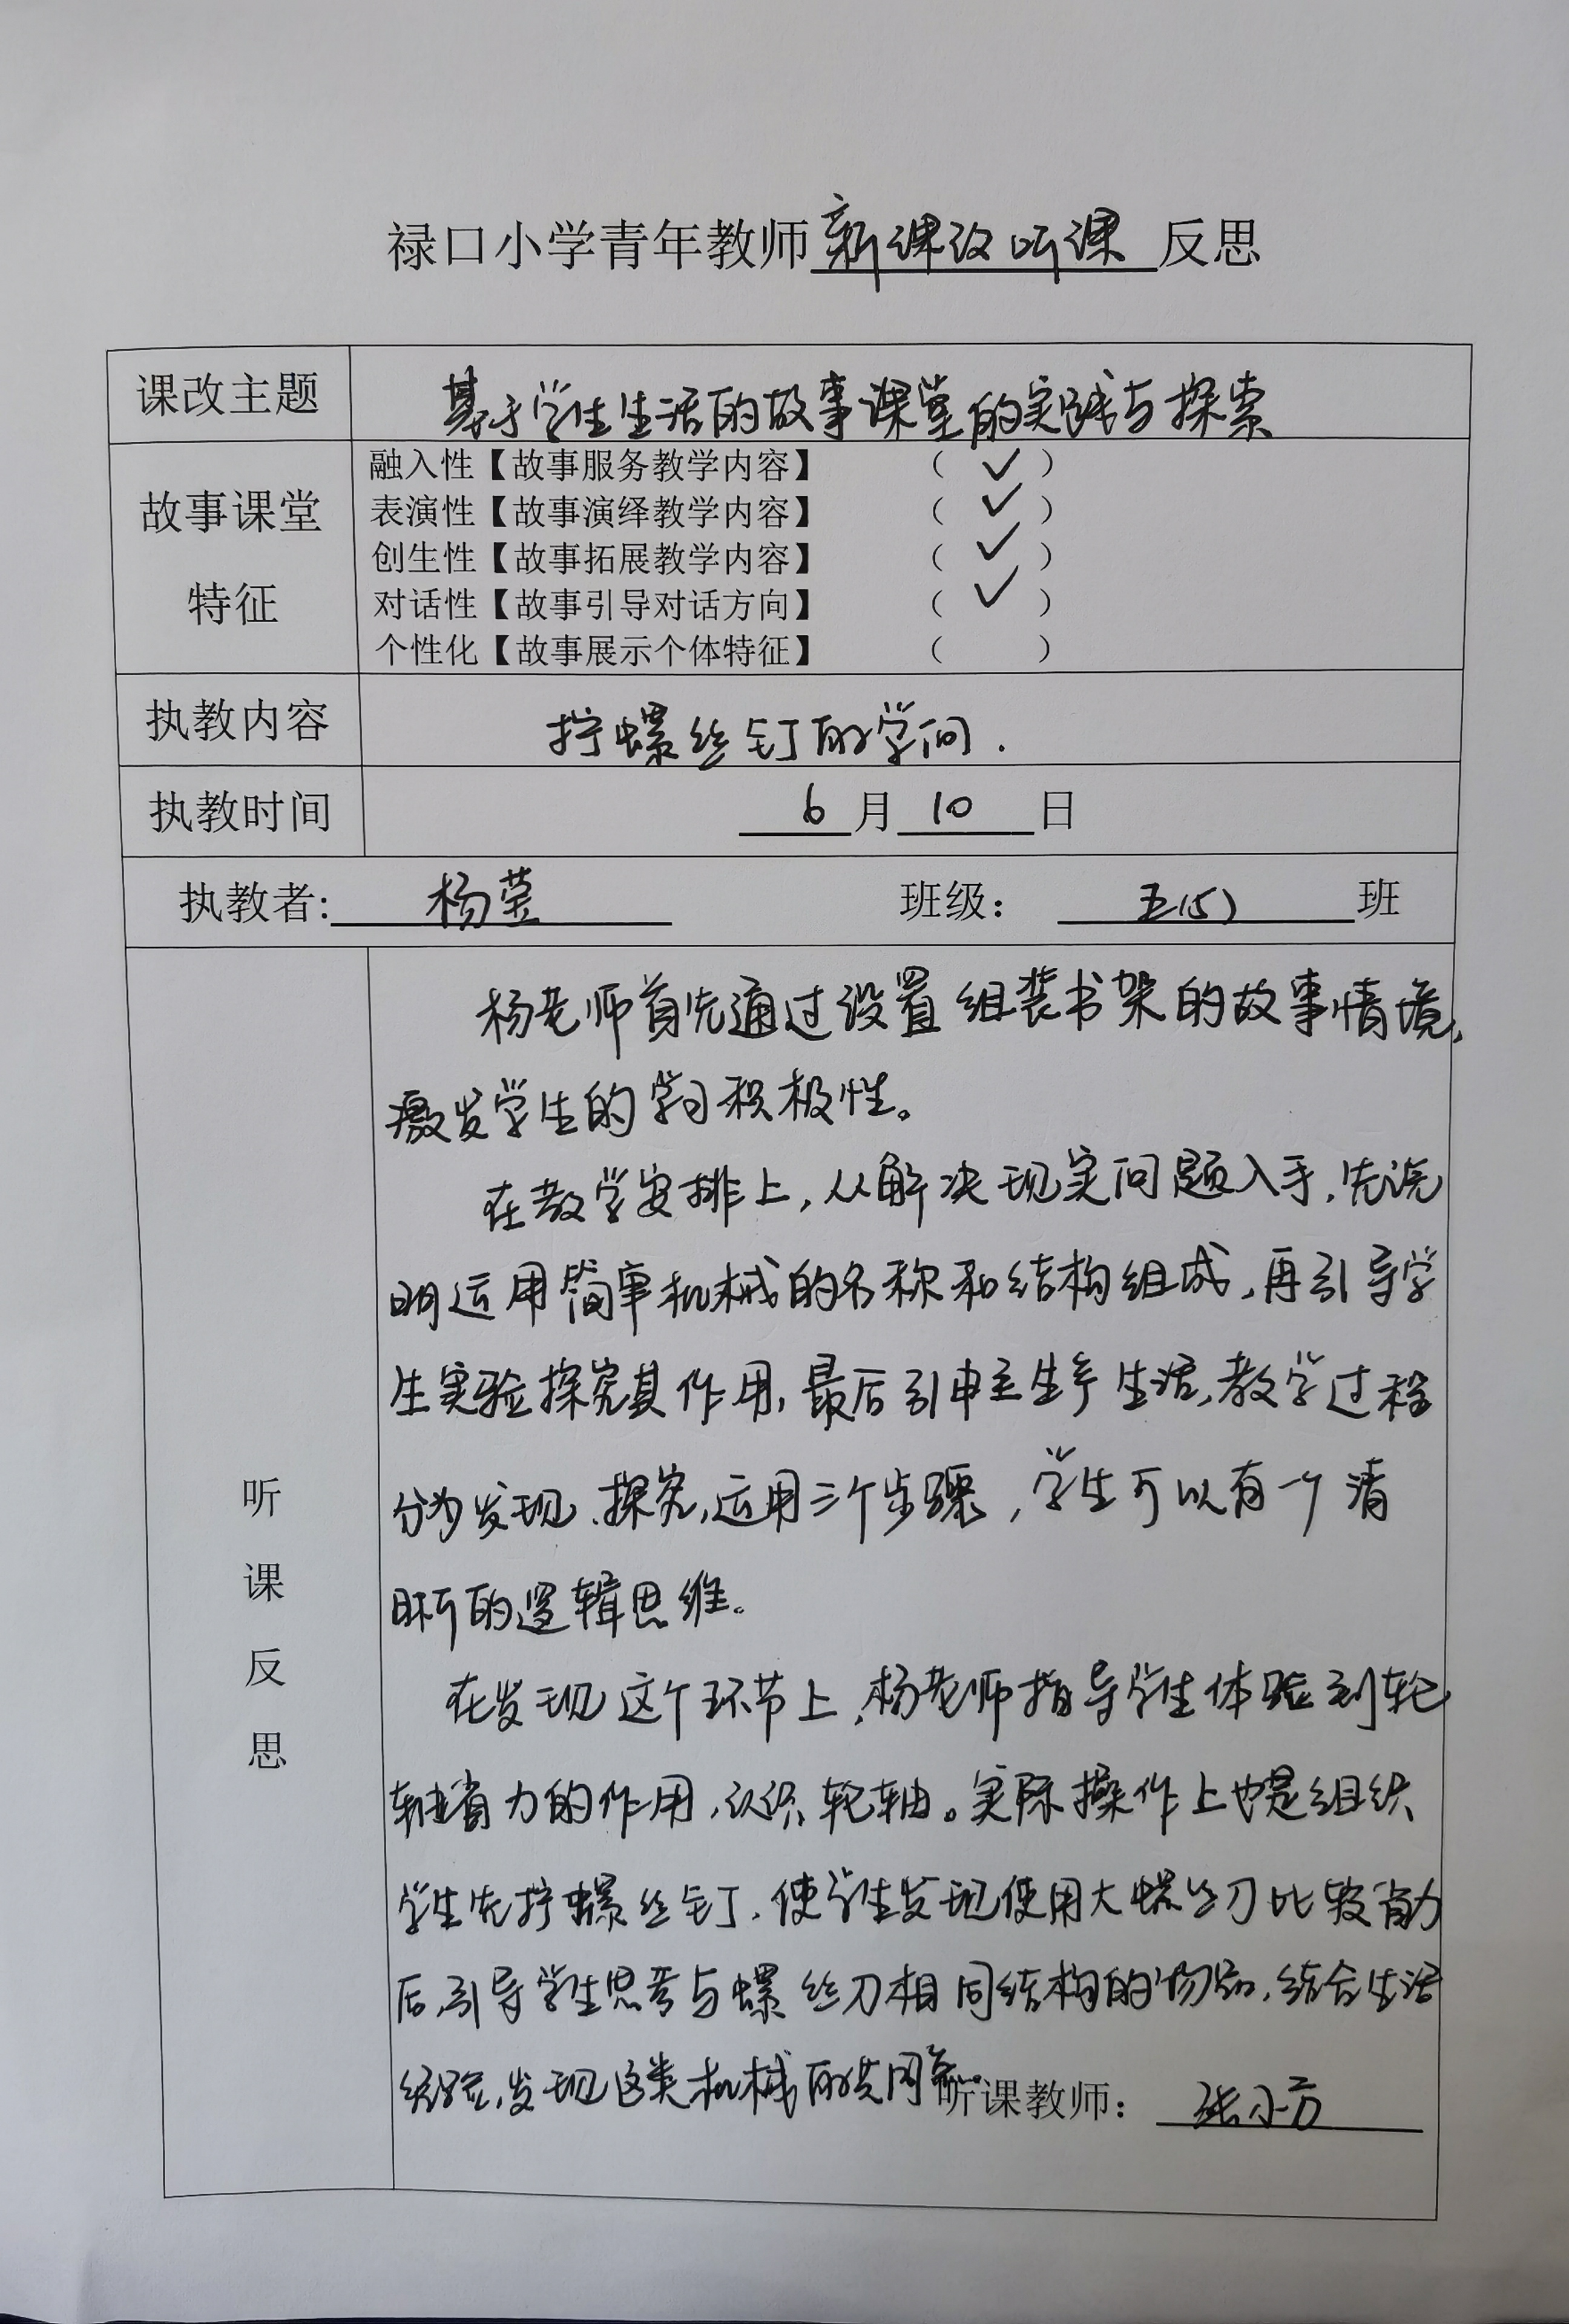 禄口小学青年教师新课改听课反思
课改主题 基于学生生活的故事课堂的实践与探索
故事课堂特征
融入性【故事服务教学内容】 （ ✓ ）
表演性【故事演绎教学内容】 （ ✓ ）
创生性【故事拓展教学内容】 （ ✓ ）
对话性【故事引导对话方向】 （ ✓ ）
个性化【故事展示个体特征】 （ ）
执教内容 拧螺丝钉的学问.
执教时间 6月10日
执教者: 杨莹 班级： 五(5)班
听课反思
杨老师首先通过设置组装书架的故事情境,
激发学生的学习积极性。
在教学安排上,从解决现实问题入手,先说
明运用简单机械的名称和结构组成,再引导学
生实验探究其作用,最后引申至生产生活,教学过程
分为发现、探究,运用三个步骤,学生可以有一个清
晰的逻辑思维。
在发现这个环节上,杨老师指导学生体验到轮
轴省力的作用,认识轮轴。实际操作上也是组织
学生先拧螺丝钉,使学生发现使用大螺丝刀比较省力
后,引导学生思考与螺丝刀相同结构的物品,结合生活
经验,发现这类机械的共同点。
听课教师： 张小芳